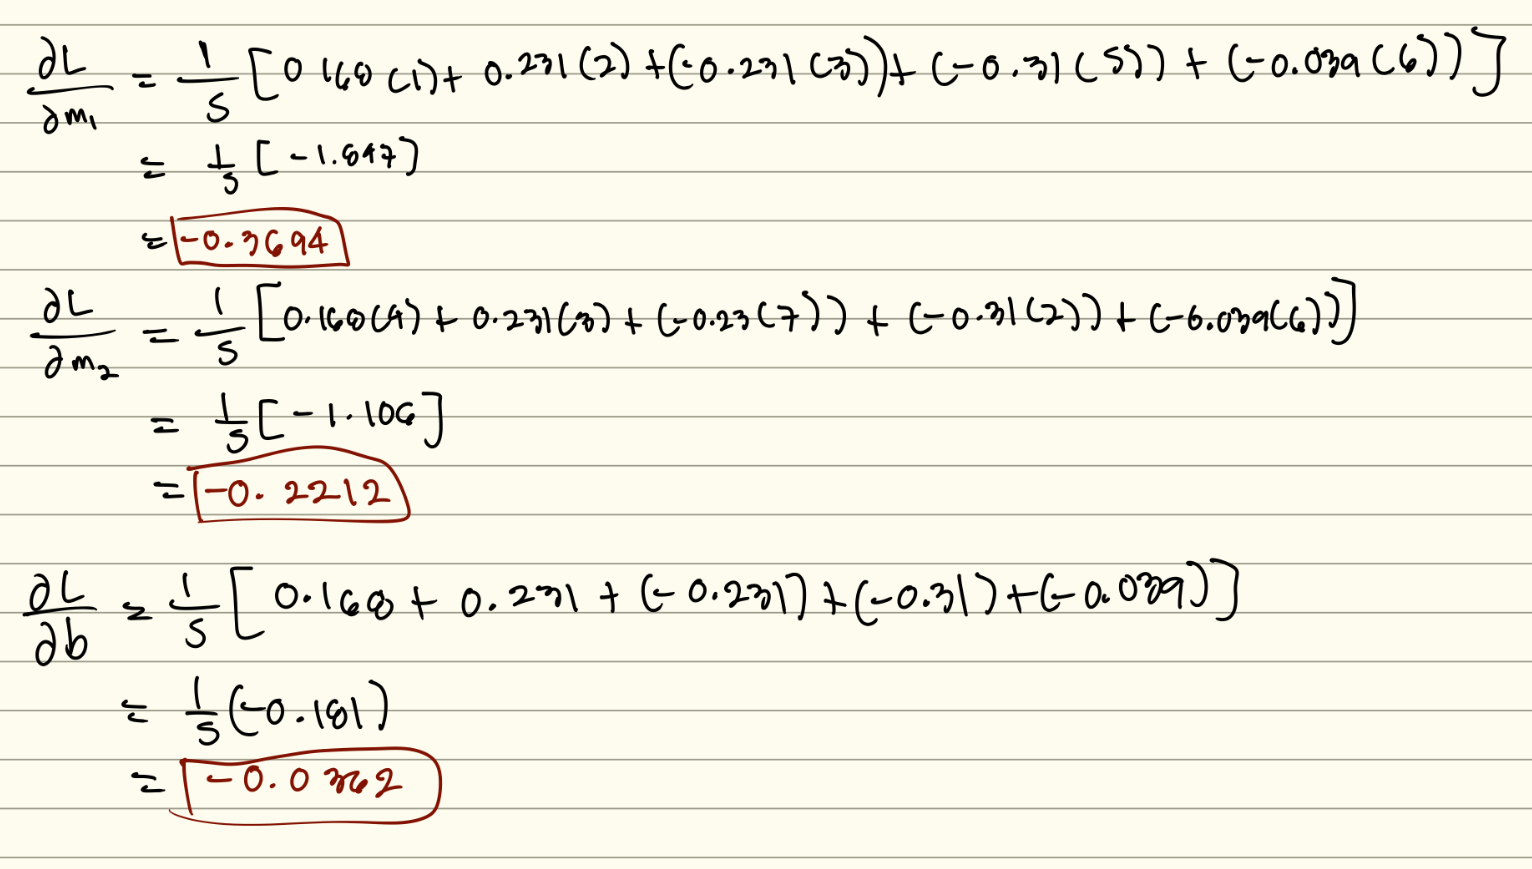 ∂L/∂m₁ = 1/5 [0 168 (1) + 0.231 (2) + (-0.231 (3)) + (-0.31 (5)) + (-0.039 (6))]
= 1/5 [-1.847]
= -0.3694
∂L/∂m₂ = 1/5 [0.168 (4) + 0.231 (3) + (-0.23 (7)) + (-0.31 (2)) + (-0.039 (6))]
= 1/5 [-1.106]
= -0.2212
∂L/∂b = 1/5 [0.168 + 0.231 + (-0.231) + (-0.31) + (-0.039)]
= 1/5 (-0.181)
= -0.0362